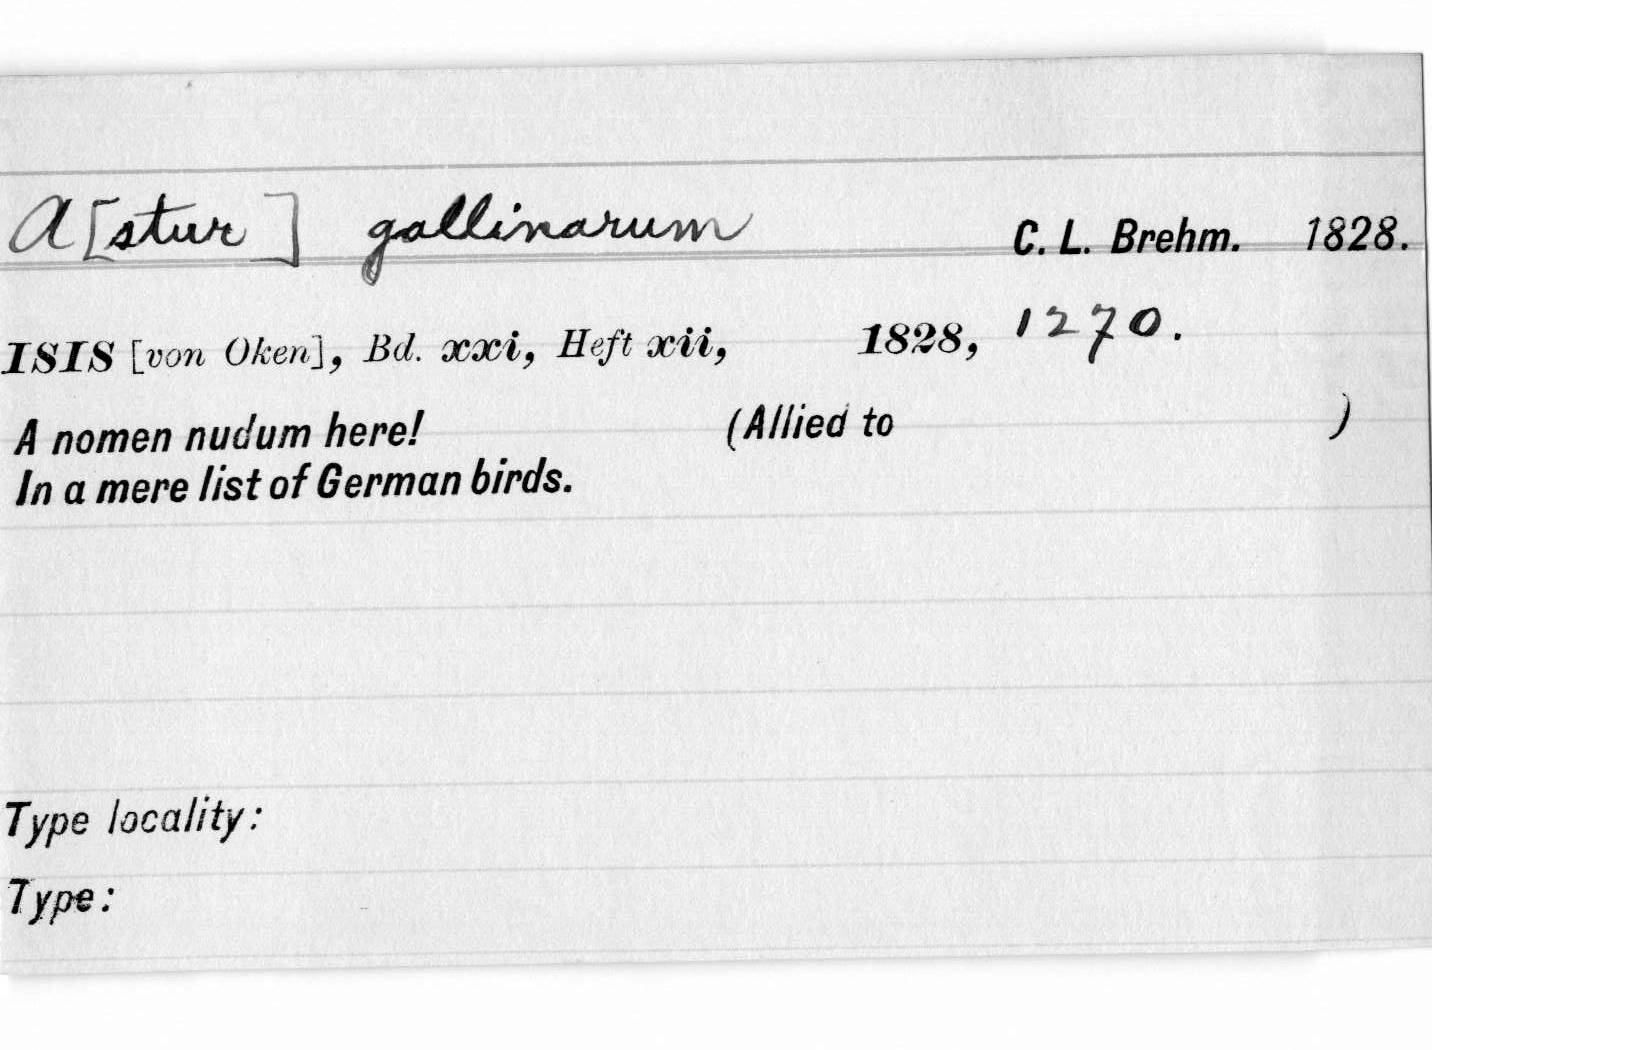 A[stur] gallinarum C. L. Brehm. 1828.
ISIS [von Oken], Bd. xxi, Heft xii, 1828, 1270.
A nomen nudum here! (Allied to )
In a mere list of German birds.
Type locality:
Type: